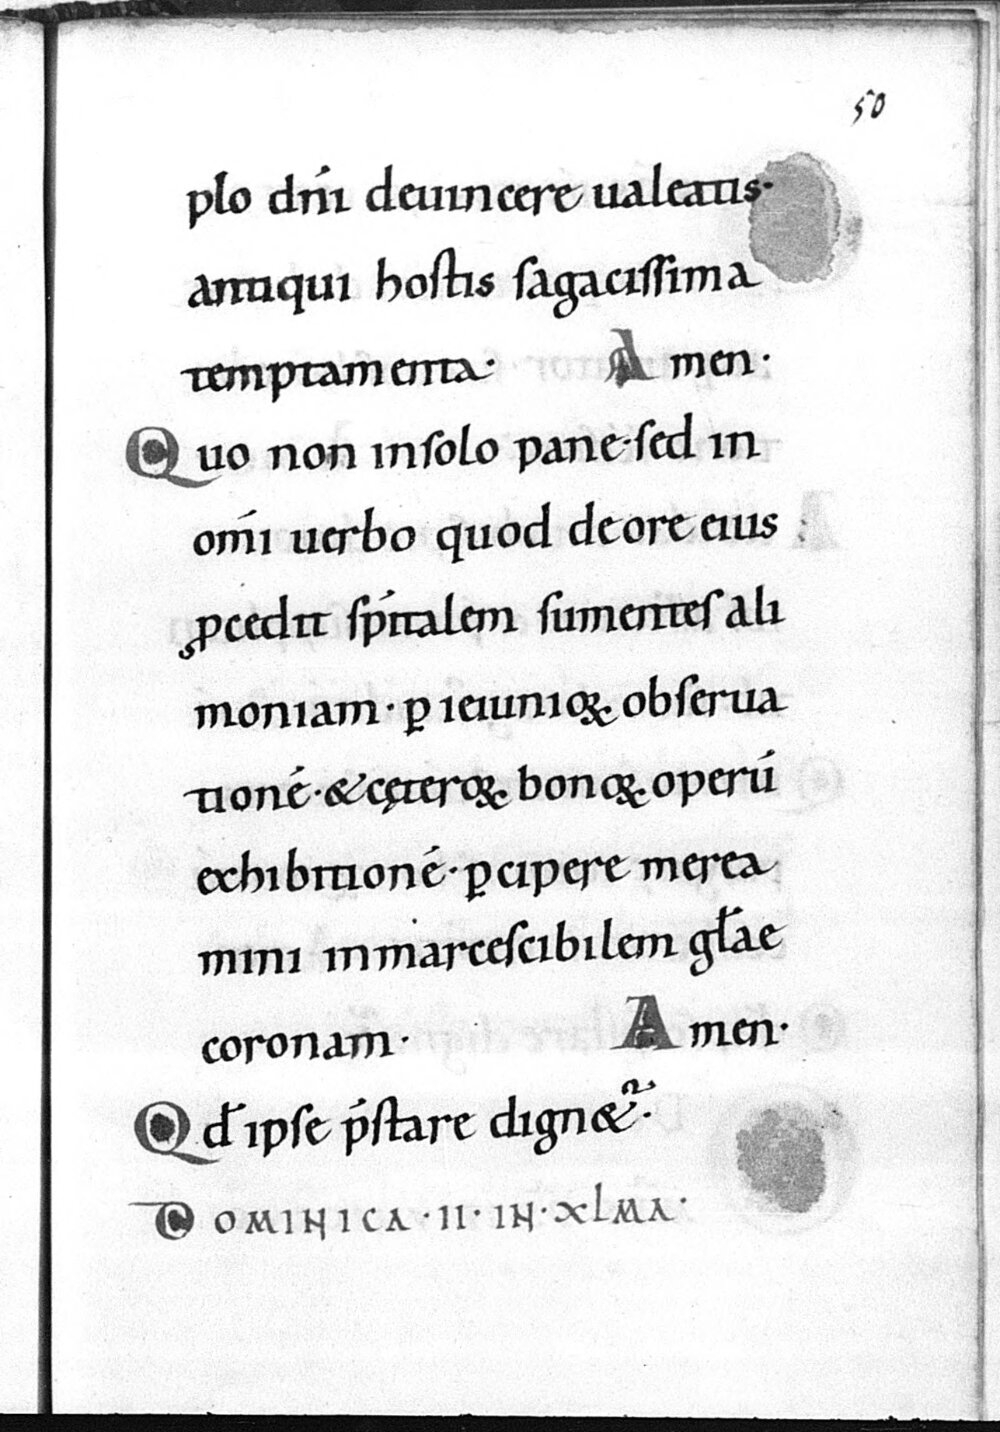 50
plo dńı deuıncere ualeatıs·
antıquı hostıs ſagacıſſima
temptamenta· Amen·
Quo non ınſolo pane·ſed ın
om̄ı uerbo quod deore eıus
ꝓcedıt ſpı́talem ſumenteſ alı
monıam· ꝑ ıeıunıoꝝ obſerua
tıoné·&cęteroꝝ bonoꝝ operú
exhıbıtıoné·ꝑcıpere merea
mını ınmarceſcıbılem gƚae
coronam· Amen·
Qđ ıpſe ṕſtare dıgn&ᷣ·
DOMINICA·II·IN·XLMA·